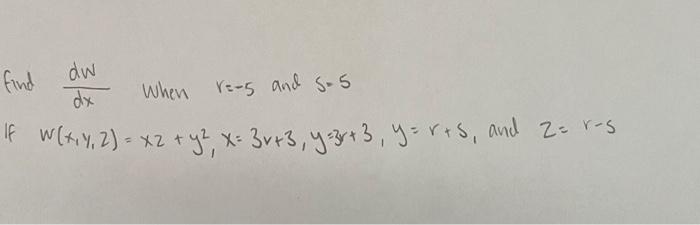 find dw/dx when r=-5 and s=5
If w(x,y,z) = xz + y², x= 3r+3, y=3r+3, y= r+s, and z= r-s